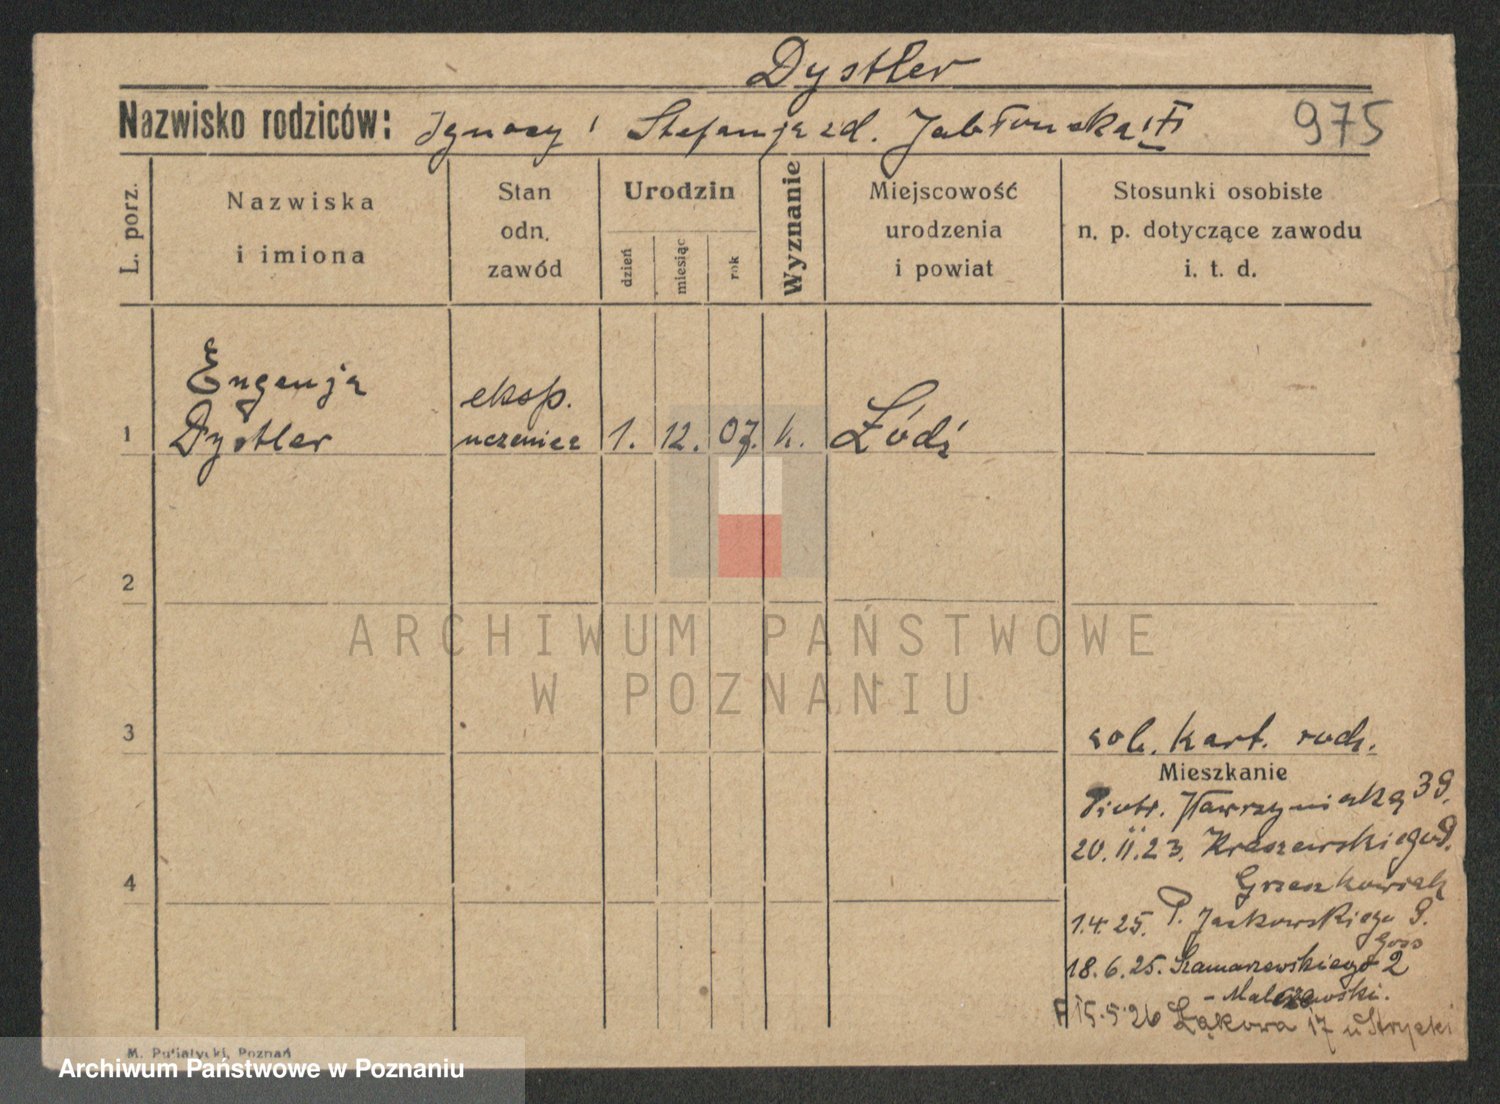 Dystler
Nazwisko rodziców: Ignacy i Stefanja zd. Jabłońska
975
L. porz.
Nazwiska
i imiona
Stan
odn.
zawód
Urodzin
dzień
miesiąc
rok
Wyznanie
Miejscowość
urodzenia
i powiat
Stosunki osobiste
n. p. dotyczące zawodu
i. t. d.
Eugenja
1 Dystler eksp. uczenica 1. 12. 07. k. Łódź
2
ARCHIWUM PAŃSTWOWE
W POZNANIU
3
zob. kart. rodz.
Mieszkanie
Piotr. Wawrzyniaka 39.
20. II. 23. Kraszewskiego 9.
Grzeszkowiak
4
1.4.25. P. Jackowskiego 9.
Goss
18.6.25. Szamarzewskiego 2
15.5.26 Łąkowa 17 u Strycki
M. Putiatycki, Poznań
Archiwum Państwowe w Poznaniu